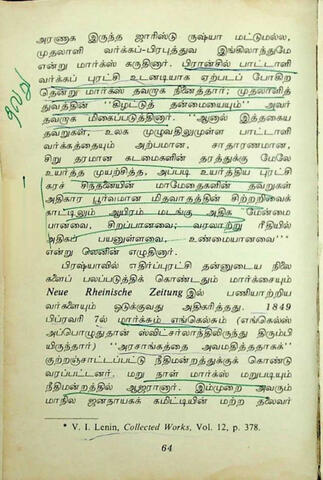 அரணாக இருந்த ஜாரிஸ்டு ருஷ்யா மட்டுமல்ல,
முதலாளி வர்க்கப்-பிரபுத்துவ இங்கிலாந்துமே
என்று மார்க்ஸ் கருதினார். பிரான்சில் பாட்டாளி
வர்க்கப் புரட்சி உடனடியாக ஏற்படப் போகிற
தென்று மார்க்ஸ் தவறாக நினைத்தார்; முதலாளித்
துவத்தின் "கிழட்டுத் தன்மையையும்" அவர்
தவறாக மிகைப்படுத்தினார். "ஆனால் இத்தகைய
தவறுகள்; உலக முழுவதிலுமுள்ள பாட்டாளி
வர்க்கத்தையும் அற்பமான, சாதாரணமான,
சிறு தரமான கடமைகளின் தரத்துக்கு மேலே
உயர்த்த முயற்சித்த, அப்படி உயர்த்திய புரட்சி
கரச் சிந்தனையின் மாமேதைகளின் தவறுகள்
அதிகார பூர்வமான மிதவாதத்தின் சிற்றறிவைக்
காட்டிலும் ஆயிரம் மடங்கு அதிக மேன்மை
பானவை, சிறப்பானவை; வரலாற்று ரீதியில்
அதிகப் பயனுள்ளவை, உண்மையானவை"*
என்று லெனின் எழுதினார்.
பிரஷ்யாவில் எதிர்ப்புரட்சி தன்னுடைய நிலை
களைப் பலப்படுத்திக் கொண்டதும் மார்க்சையும்
Neue Rheinische Zeitung இல் பணியாற்றிய
வர்களையும் ஒடுக்குவது அதிகரித்தது. 1849
பிப்ரவரி 7ல் மார்க்சும் எங்கெல்சும் (எங்கெல்ஸ்
அப்பொழுதுதான் ஸ்விட்சர்லாந்திலிருந்து திரும்பி
யிருந்தார்) "அரசாங்கத்தை அவமதித்ததாகக்"
குற்றஞ்சாட்டப்பட்டு நீதிமன்றத்துக்குக் கொண்டு
வரப்பட்டனர். மறு நாள் மார்க்ஸ் மறுபடியும்
நீதிமன்றத்தில் ஆஜரானார். இம்முறை அவரும்
மாநில ஜனநாயகக் கமிட்டியின் மற்ற தலைவர்
* V. I. Lenin, Collected Works, Vol. 12, p. 378.
64